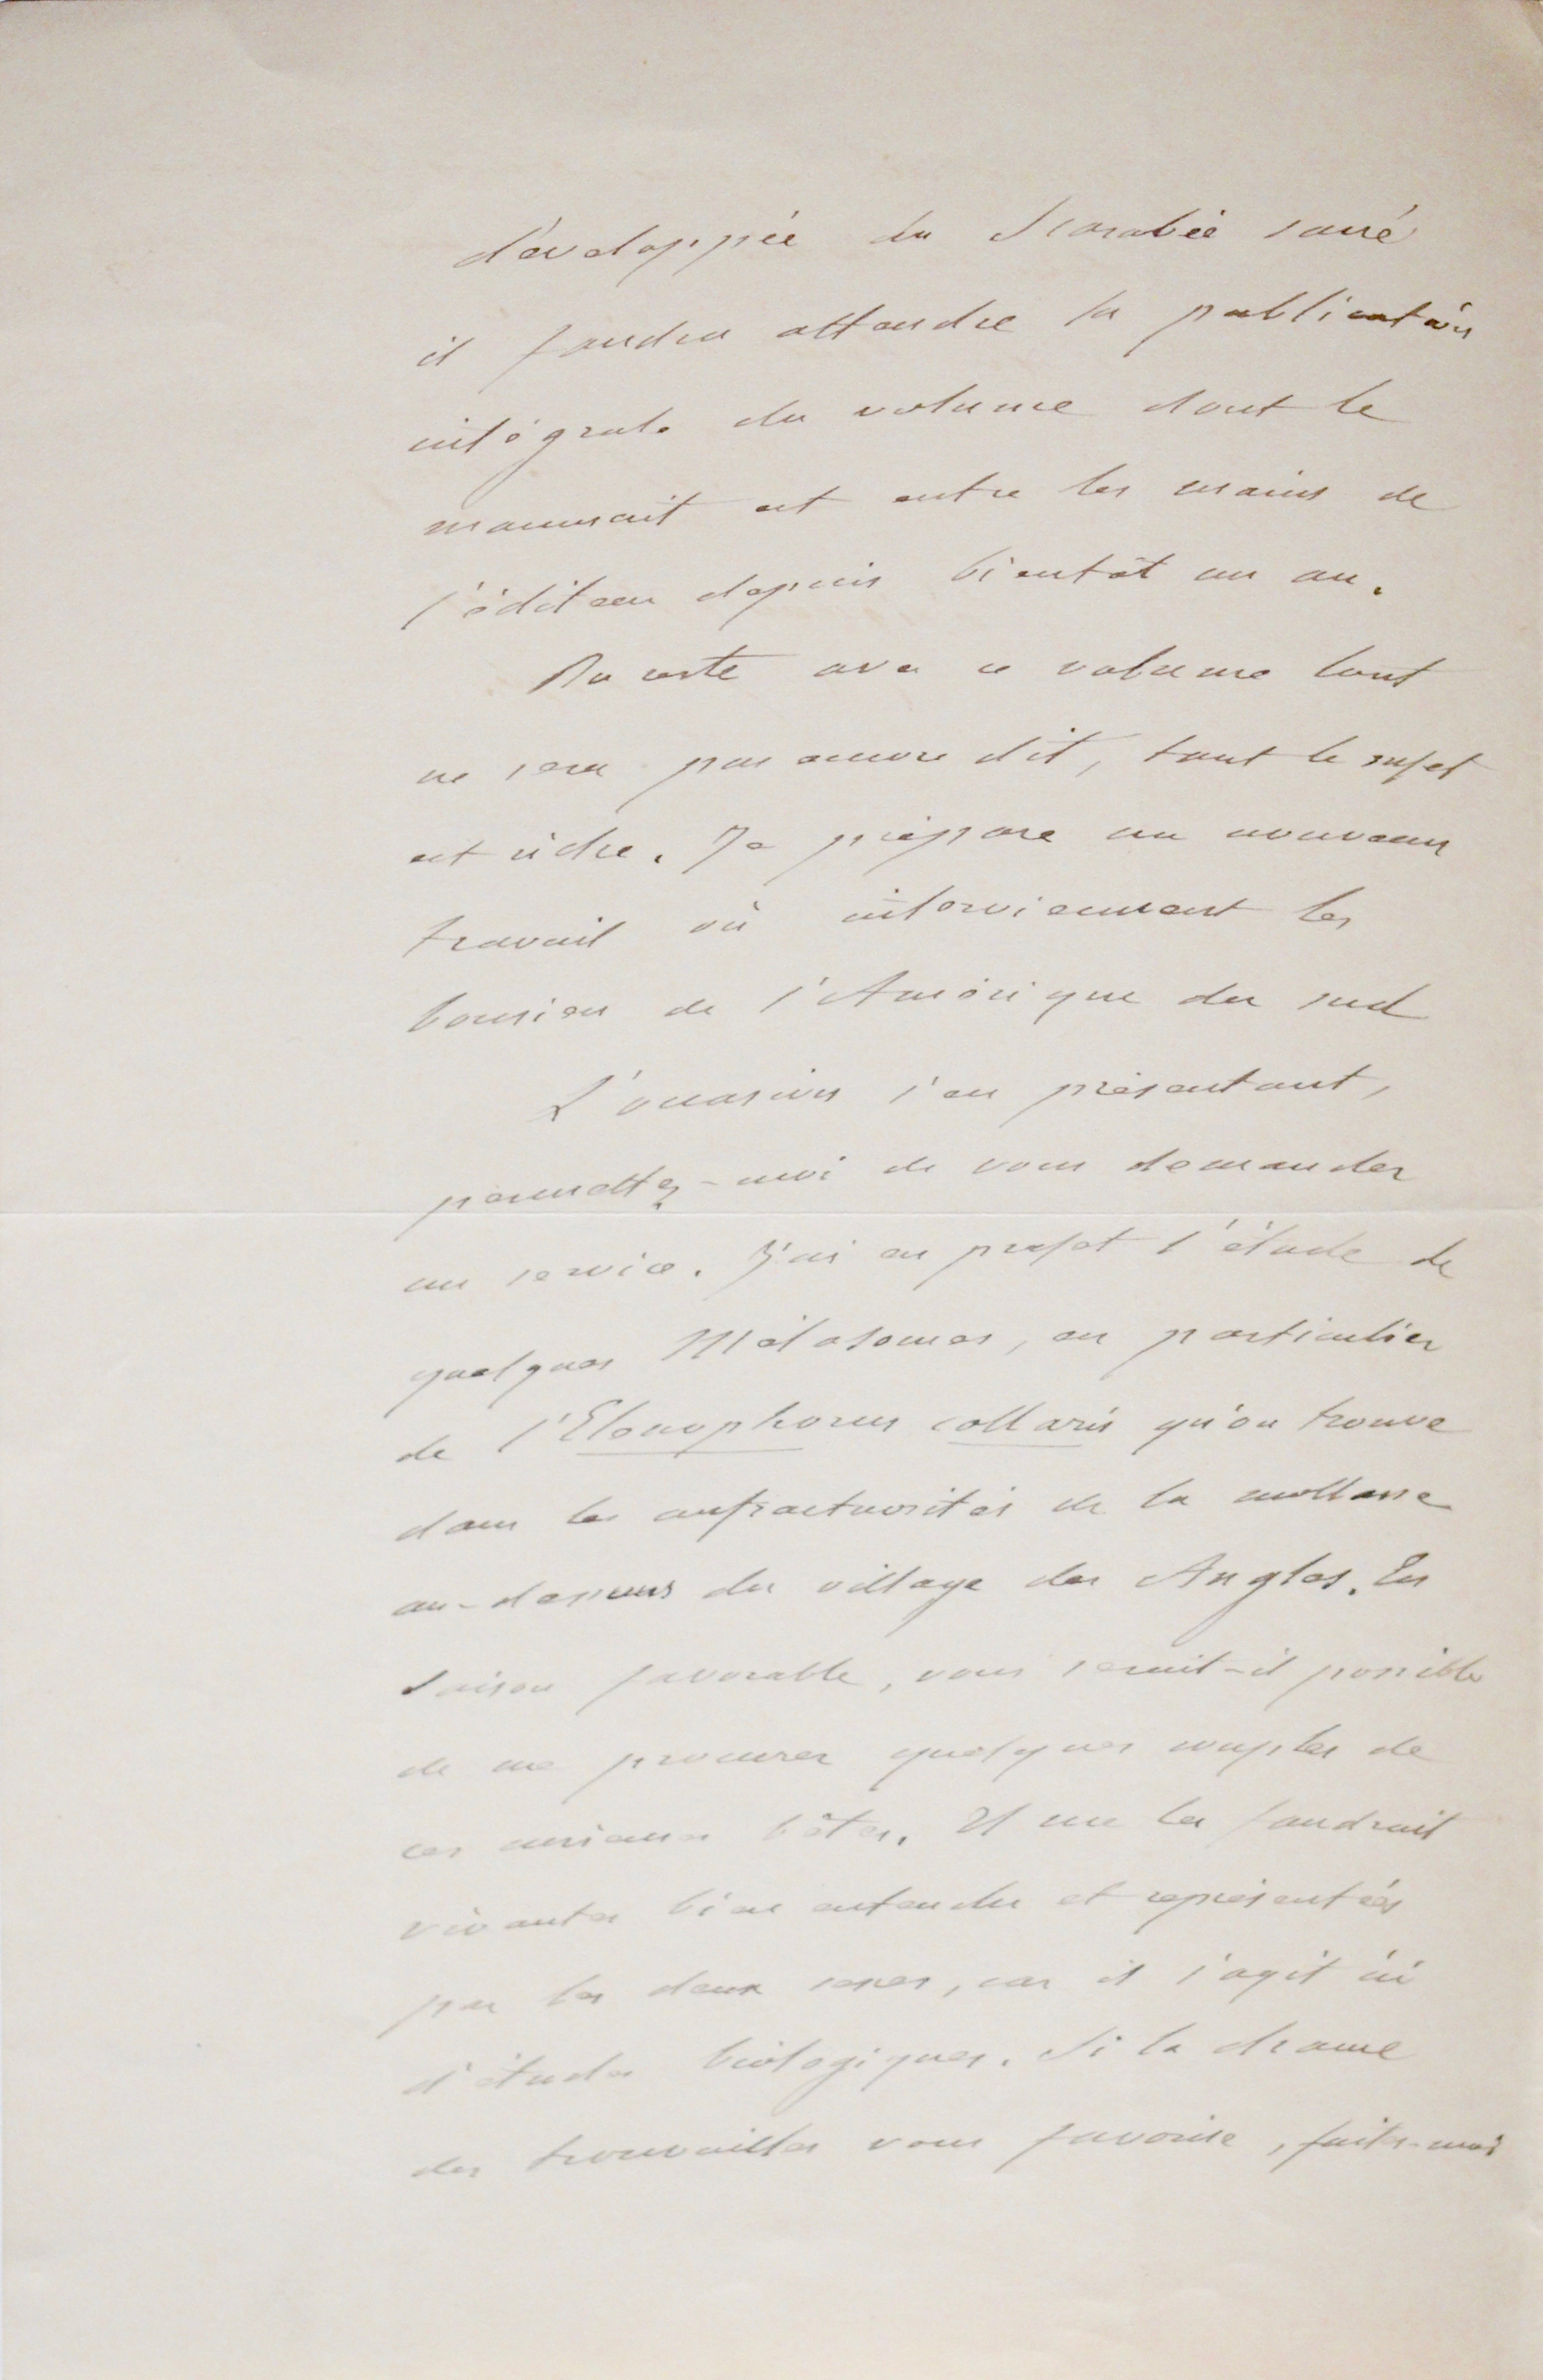 développée du Scarabée sacré
il faudra attendre la publication
intégrale du volume dont le
manuscrit est entre les mains de
l'éditeur depuis bientôt un an.
Du reste avec ce volume tout
ne sera pas encore dit, tant le sujet
est riche. Je prépare un nouveau
travail où interviennent les
bousiers de l'Amérique du sud
L'occasion s'en présentant,
permettez-moi de vous demander
un service. J'ai en projet l'étude de
quelques Mélasomes, en particulier
de l'Elenophorus collaris qu'on trouve
dans les anfractuosités de la mollasse
au-dessus du village des Angles. En
saison favorable, vous serait-il possible
de me procurer quelques couples de
ces curieuses bêtes. Il me les faudrait
vivantes bien entendu et représentées
par les deux sexes, car il s'agit ici
d'études biologiques. Si la chance
des trouvailles vous favorise, faites-moi